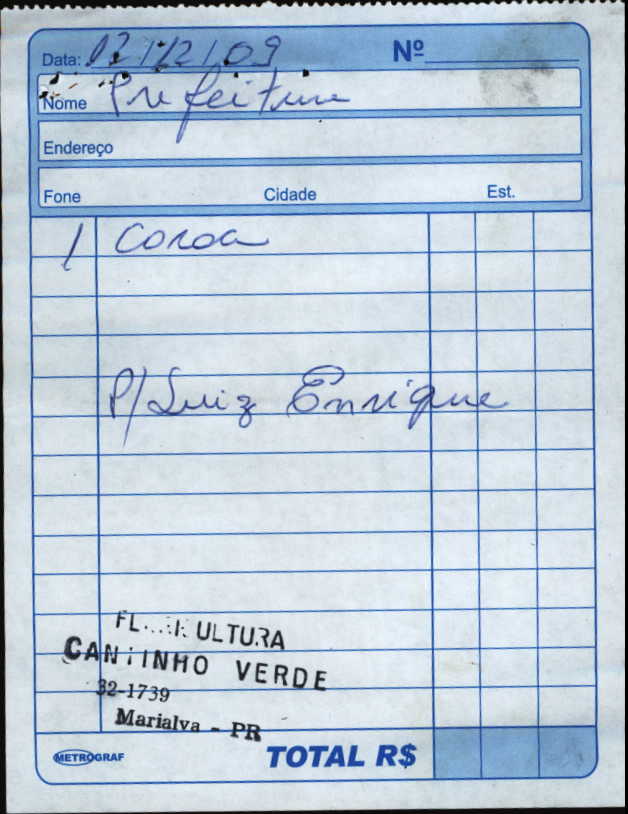 Data: 03/12/09 Nº
Nome Prefeitura
Endereço
Fone Cidade Est.
1 Coroa
P/ Luiz Enrique
CANTINHO VERDE
32-1739
Marialva - PR
METROGRAF TOTAL R$